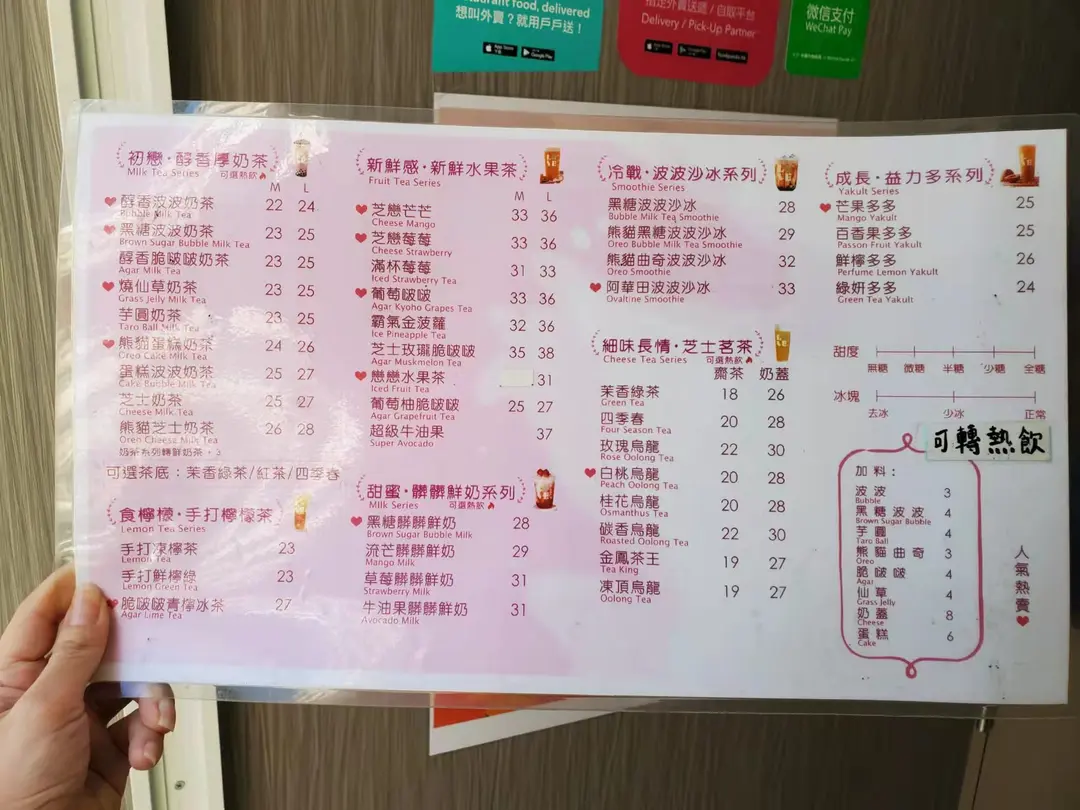 restaurant food, delivered
想叫外賣？就用戶戶送！
App Store
Google Play
指定外賣速遞 / 自取平台
Delivery / Pick-Up Partner
App Store
Google Play
foodpanda.hk
微信支付
WeChat Pay
初戀·醇香厚奶茶
Milk Tea Series 可選熱飲
M L
醇香波波奶茶 22 24
Bubble Milk Tea
黑糖波波奶茶 23 25
Brown Sugar Bubble Milk Tea
醇香脆啵啵奶茶 23 25
Agar Milk Tea
燒仙草奶茶 23 25
Grass Jelly Milk Tea
芋圓奶茶 23 25
Taro Ball Milk Tea
熊貓蛋糕奶茶 24 26
Oreo Cake Milk Tea
蛋糕波波奶茶 25 27
Cake Bubble Milk Tea
芝士奶茶 25 27
Cheese Milk Tea
熊貓芝士奶茶 26 28
Oreo Cheese Milk Tea
奶茶系列轉鮮奶茶 + 3
可選茶底：茉香綠茶/紅茶/四季春
食檸檬·手打檸檬茶
Lemon Tea Series
手打凍檸茶 23
Lemon Tea
手打鮮檸綠 23
Lemon Green Tea
脆啵啵青檸冰茶 27
Agar Lime Tea
新鮮感·新鮮水果茶
Fruit Tea Series
M L
芝戀芒芒 33 36
Cheese Mango
芝戀莓莓 33 36
Cheese Strawberry
滿杯莓莓 31 33
Iced Strawberry Tea
葡萄啵啵 33 36
Agar Kyoho Grapes Tea
霸氣金菠蘿 32 36
Ice Pineapple Tea
芝士玫瓏脆啵啵 35 38
Agar Muskmelon Tea
戀戀水果茶 31
Iced Fruit Tea
葡萄柚脆啵啵 25 27
Agar Grapefruit Tea
超級牛油果 37
Super Avocado
甜蜜·髒髒鮮奶系列
Milk Series 可選熱飲
黑糖髒髒鮮奶 28
Brown Sugar Bubble Milk
流芒髒髒鮮奶 29
Mango Milk
草莓髒髒鮮奶 31
Strawberry Milk
牛油果髒髒鮮奶 31
Avocado Milk
冷戰·波波沙冰系列
Smoothie Series
黑糖波波沙冰 28
Bubble Milk Tea Smoothie
熊貓黑糖波波沙冰 29
Oreo Bubble Milk Tea Smoothie
熊貓曲奇波波沙冰 32
Oreo Smoothie
阿華田波波沙冰 33
Ovaltine Smoothie
細味長情·芝士茗茶
Cheese Tea Series 可選熱飲
齋茶 奶蓋
茉香綠茶 18 26
Green Tea
四季春 20 28
Four Season Tea
玫瑰烏龍 22 30
Rose Oolong Tea
白桃烏龍 20 28
Peach Oolong Tea
桂花烏龍 20 28
Osmanthus Tea
碳香烏龍 22 30
Roasted Oolong Tea
金鳳茶王 19 27
Tea King
凍頂烏龍 19 27
Oolong Tea
成長·益力多系列
Yakult Series
芒果多多 25
Mango Yakult
百香果多多 25
Passon Fruit Yakult
鮮檸多多 26
Perfume Lemon Yakult
綠妍多多 24
Green Tea Yakult
甜度
無糖 微糖 半糖 少糖 全糖
冰塊
去冰 少冰 正常
可轉熱飲
加料：
波波 3
Bubble
黑糖波波 4
Brown Sugar Bubble
芋圓 4
Taro Ball
熊貓曲奇 3
Oreo
脆啵啵 4
Agar
仙草 4
Grass Jelly
奶蓋 8
Cheese
蛋糕 6
Cake
人氣熱賣